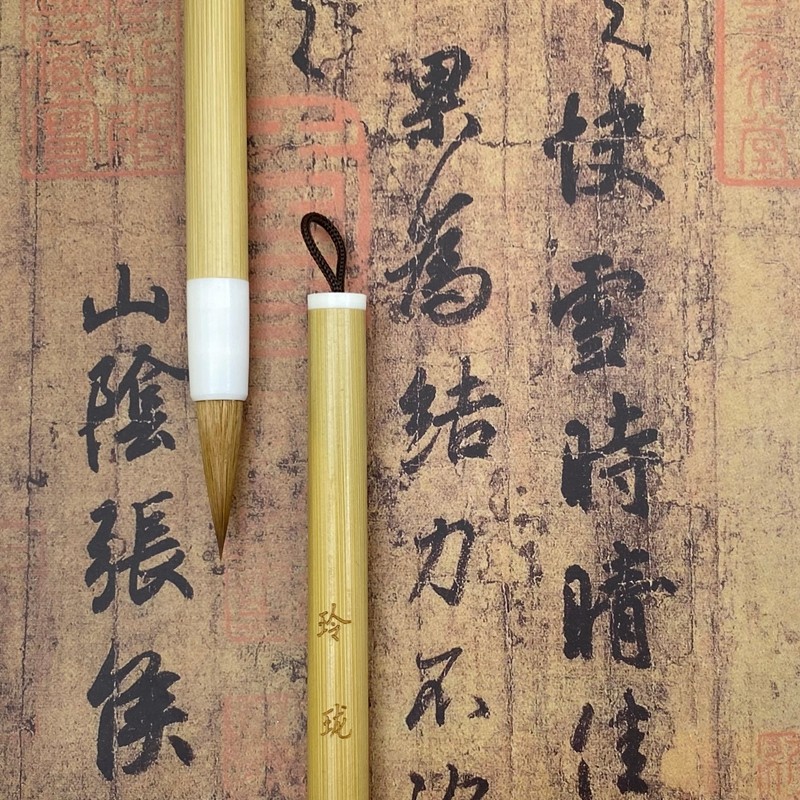 快雪時晴佳
果為結力不
山陰張侯
玲珑